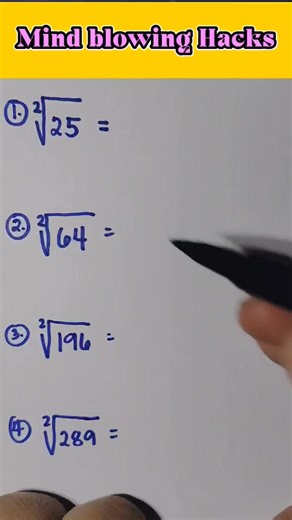 Mind blowing Hacks
①. ²√25 =
②. ²√64 =
③. ²√196 =
④. ²√289 =